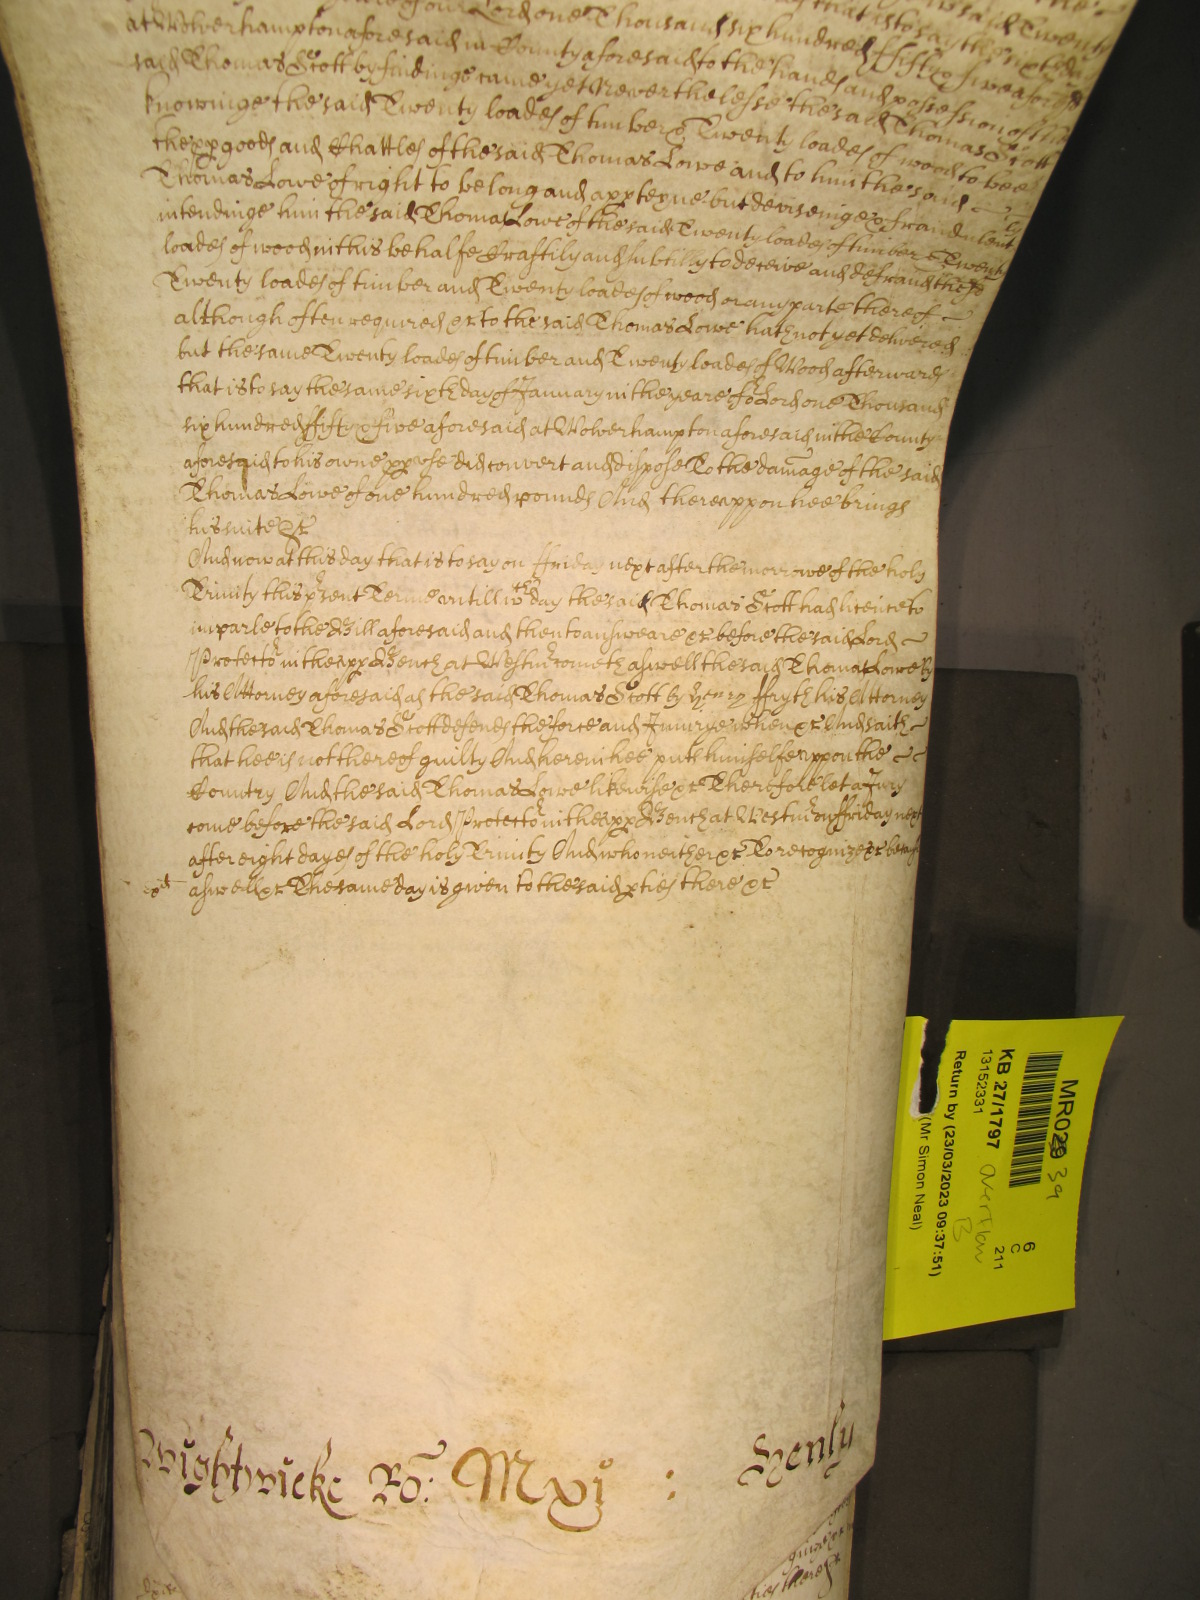 of our Lord one Thousand six hundred
at Wolverhampton aforesaid in County aforesaid to the hands and possession of the
said Thomas Scott by findinge came yet Neverthelesse the said Thomas Scott
knowinge the said Twenty loades of timber & Twenty loades of wood to bee
the pp goods and Chattles of the said Thomas Lowe and to him the said
Thomas Lowe of right to belong and apperteyne but deviseinge & fraudulent
intendinge him the said Thomas Lowe of the said Twenty loades of timber & Twenty
loades of wood in this behalfe Craftily and subtilly to deceive and defraud the said
Twenty loades of timber and Twenty loades of wood or any parte thereof
although often required &c to the said Thomas Lowe hath not yet delivered
but the same Twenty loades of timber and Twenty loades of Wood afterwards
that is to say the same sixth day of January in the yeare of o Lord one Thousand
six hundred ffifty & five aforesaid at Wolverhampton aforesaid in the County
aforesaid to his owne pp use did convert and dispose To the damage of the said
Thomas Lowe of one hundred pounds And thereuppon hee brings
his suite &c
And now at this day that is to say on ffriday next after the morrowe of the holy
Trinity this psent Terme untill wch day the said Thomas Scott had licence to
imparle to the Bill aforesaid and then to answeare &c before the said Lord
Protector in the upp Bench at Westmr cometh aswell the said Thomas Lowe By
his Attorney aforesaid as the said Thomas Scott by Henry ffryth his Attorney
And the said Thomas Scott defends the force and Iniurye when &c And saith
that hee is not thereof guilty And herein hee puts himselfe uppon the
Country And the said Thomas Lowe likewise &c Therefore let a Jury
come before the said Lord Protector in the upp Bench at Westmr on ffriday next
after eight dayes of the holy Trinity And who neither &c To recognize &c because
aswell &c The same day is given to the said pties there &c
Wightwicke Ro: Mxi : Henly
MR029 39
KB 27/1797
13152331
overflow B
6
C
211
Return by (23/03/2023 09:37:51)
(Mr Simon Neal)